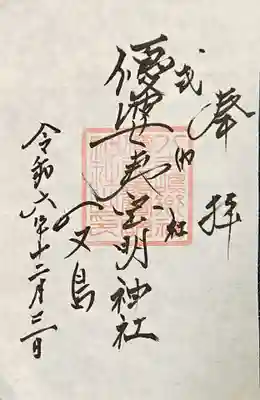 奉拝
式内社
優婆夷宝明神社
八丈島
令和六年十二月三日